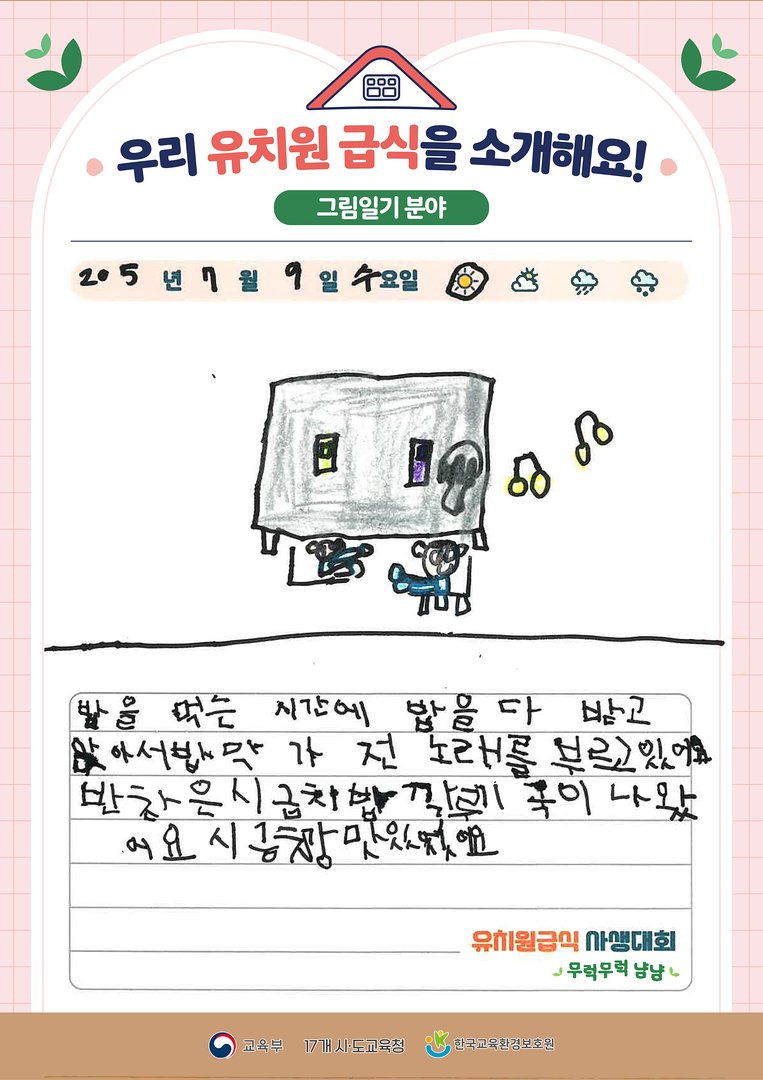 우리 유치원 급식을 소개해요!
그림일기 분야
205 년 7 월 9 일 수요일
밥을 먹는 시간에 밥을 다 받고
앉아서 밥 먹 가 전 노래를 부르고 있어요
반찬은 시금치 밥 깍뚜기 국이 나왔
어요 시금치랑 맛있었어요
유치원급식 사생대회
무럭무럭 냠냠
교육부 17개 시·도교육청 한국교육환경보호원